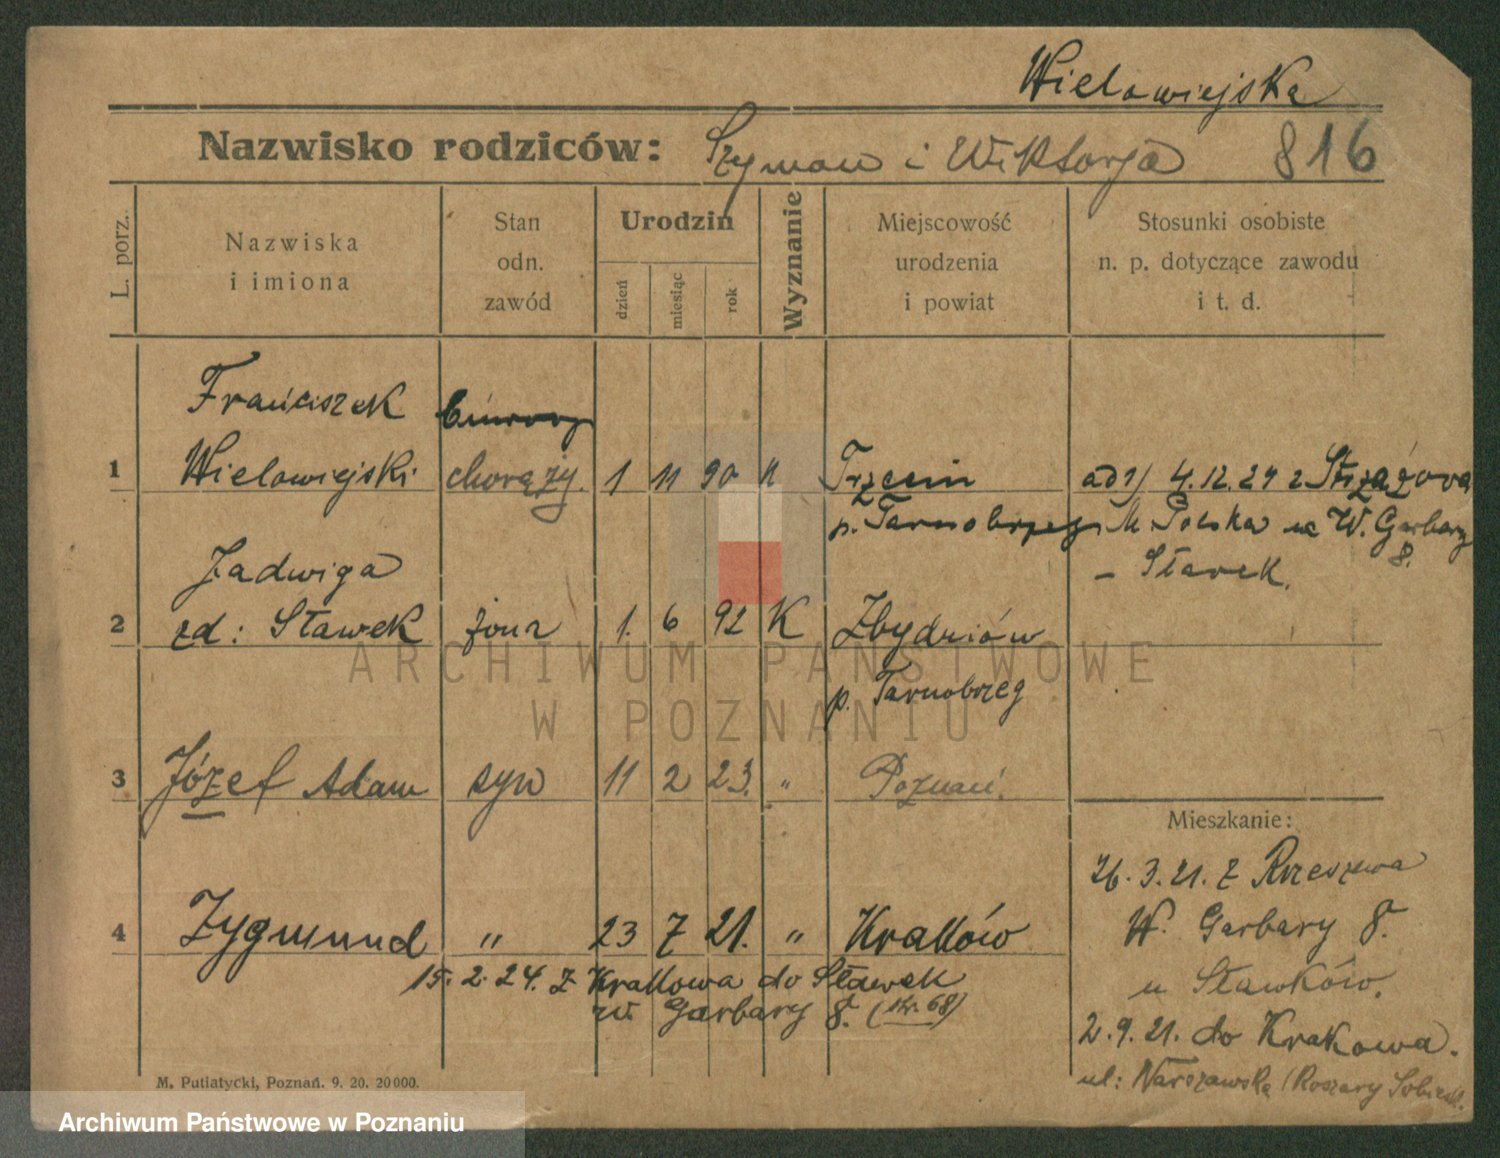 Wielowiejska
Nazwisko rodziców: Szymon i Wiktorja 816
L. porz.
Nazwiska
i imiona
Stan
odn.
zawód
Urodzin
dzień
miesiąc
rok
Wyznanie
Miejscowość
urodzenia
i powiat
Stosunki osobiste
n. p. dotyczące zawodu
i t. d.
Franciszek
1 Wielowiejski chorąży. 1 11 90 Trzecin
p. Tarnobrzeg
ad 1) 4.12.24 z
W. Garbary
8.
Jadwiga
2 zd: Sławek żona 1. 6 92 K Zbydniów
p. Tarnobrzeg
3 Józef Adam syn 11 2 23. " Poznań.
4 Zygmund " 23 7 21. " Kraków
15.2.24. z Krakowa do Sławek
W Garbary 8. (str. 68)
Mieszkanie:
26.3.21. z Rzeszowa
W. Garbary 8.
u Sławków.
2.9.21. do Krakowa.
ul: Warszawska
M. Putiatycki, Poznań. 9. 20. 20000.
ARCHIWUM PAŃSTWOWE
W POZNANIU
Archiwum Państwowe w Poznaniu